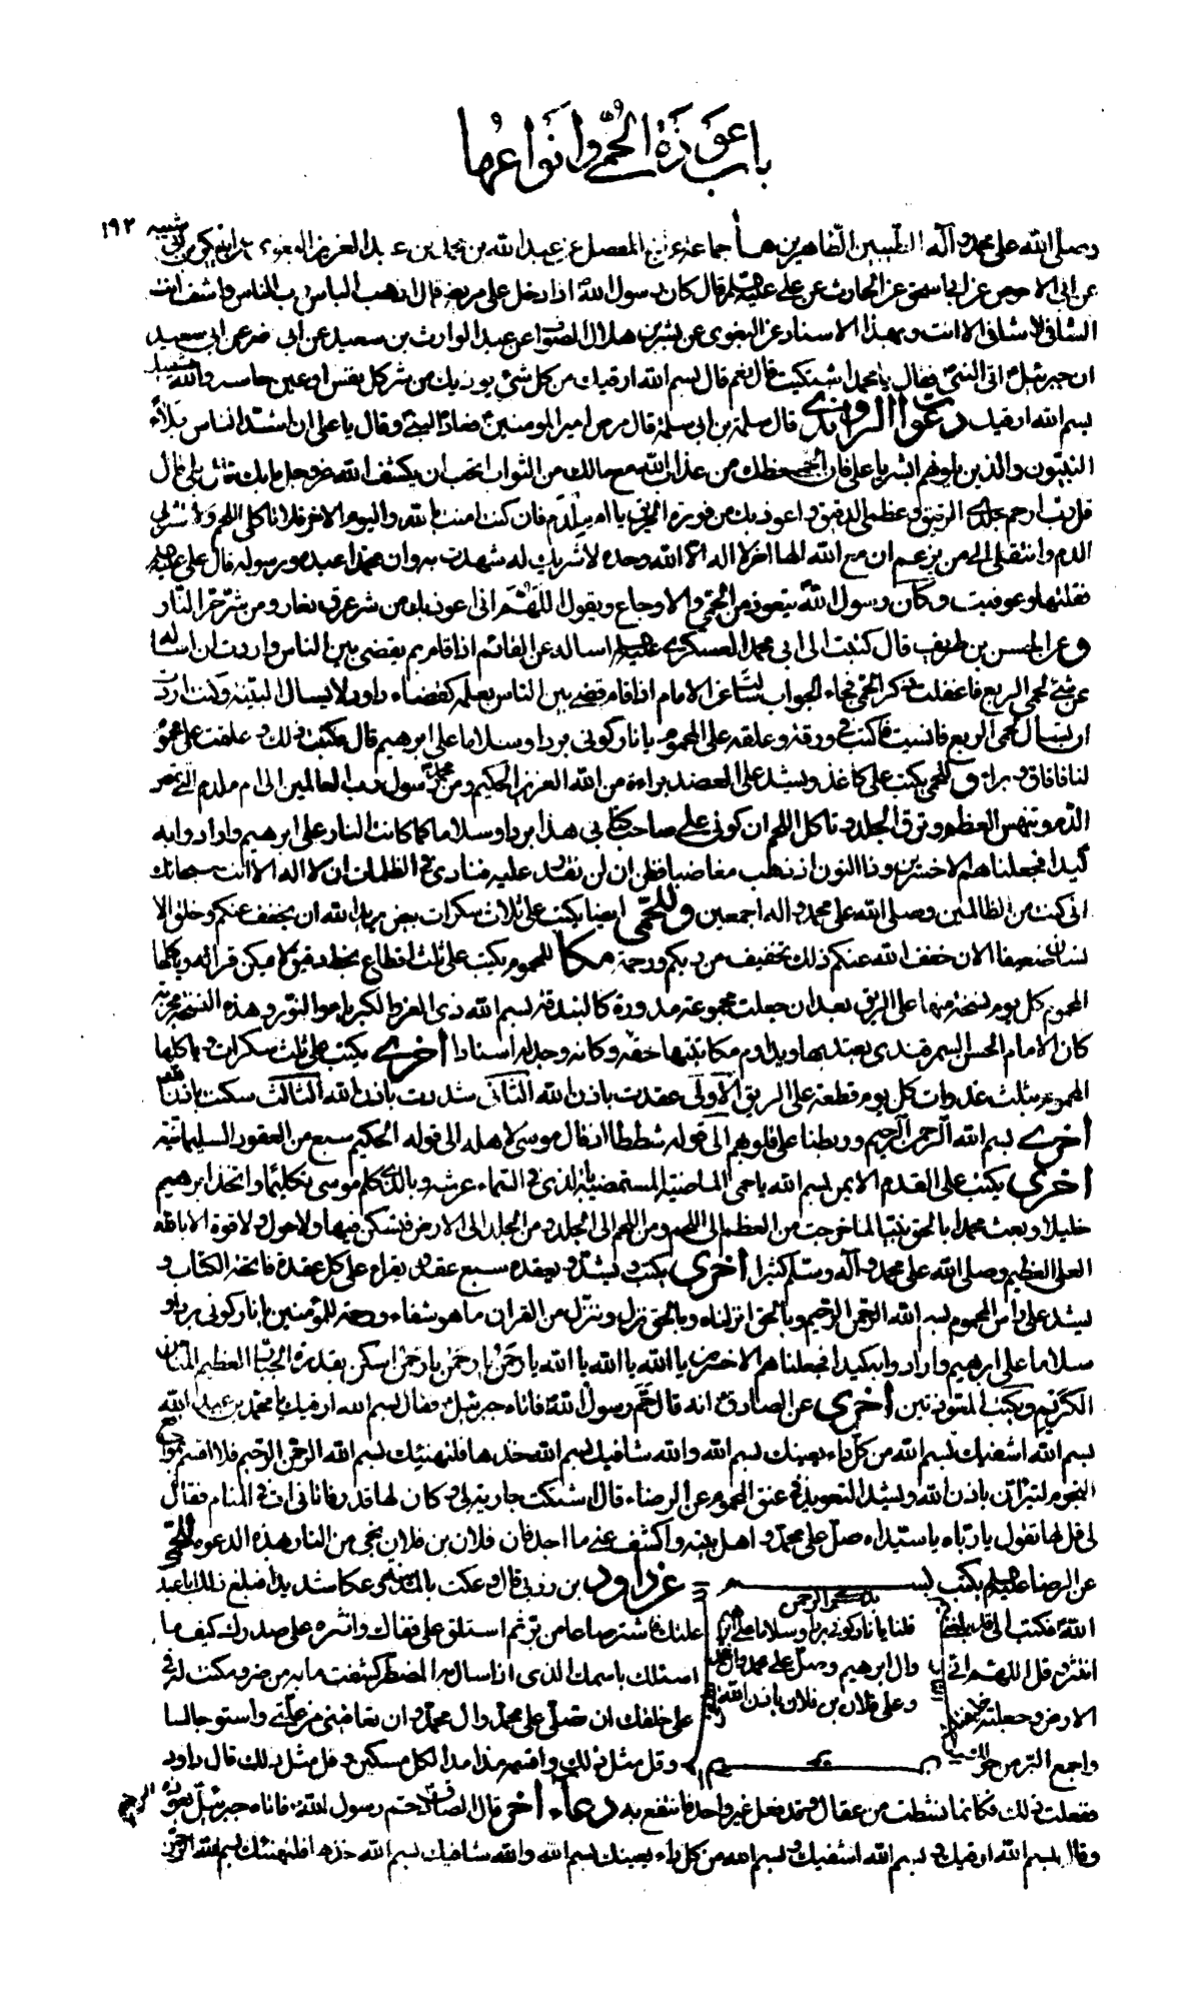 باب عوذة الحمى وانواعها
١٩٢
وصلى الله على محمد وآله الطيبين الطاهرين ما جماعة عن ابى المفضل عن عبد الله بن محمد بن عبد العزيز البغوى
عن ابى الاحوص عن ابى اسحق عن الحارث عن على عليه السلم قال كان رسول الله اذا دخل على مريض قال اذهب الباس رب الناس واشف انت
الشافى لا شافى الا انت وبهذا الاسناد عن البغوى عن بشر بن هلال الصواف عن عبد الوارث بن سعيد عن ابى نضر عن ابى سعيد
ان جبرئيل اتى النبى فقال يا محمد اشتكيت قال نعم قال بسم الله ارقيك من كل شئ يوذيك من شر كل نفس او عين حاسد والله يشفيك
بسم الله ارقيك دعوات الراوندى قال سلمة بن ابى سلمة قال مرض امير المومنين فعاده النبى وقال يا على ان اشد الناس بلاء
النبيون والذين يلونهم ابشر يا على فان الحمى حظك من عذاب الله مع مالك من الثواب اتحب ان يكشف الله عز وجل ما بك قال بلى قال
قل رب ارحم جلدى الرقيق وعظمى الدقيق واعوذ بك من فورة الحريق يا ام ملدم فان كنت امنت بالله واليوم الاخر فلا تاكلى اللحم ولا تشربى
الدم وانتقلى الى من يزعم ان مع الله الها اخر لا اله الا الله وحده لا شريك له شهدت به وان محمدا عبده ورسوله قال على عليه السلم
فقلتها وعوفيت وكان رسول الله يتعوذ من الحمى والاوجاع ويقول اللهم انى اعوذ بك من شر عرق نعار ومن شر حر النار
وعن الحسن بن طريف قال كتبت الى ابى محمد العسكرى عليه السلم اساله عن القائم اذا قام بم يقضى بين الناس واردت ان اساله
عن شئ لحمى الربع فاغفلت ذكر الحمى فجاء الجواب سالت عن الامام اذا قام قضى بين الناس بعلمه كقضاء داود لا يسال البينة وكنت اردت
ان تسال لحمى الربع فانسيت فاكتب فى ورقة وعلقه على المحموم يا نار كونى بردا وسلاما على ابراهيم قال فكتبت ذلك وعلقت على محموم
لنا فافاق وبراء و للحمى يكتب على كاغذ ويشد على العضد براءة من الله العزيز الحكيم ومن محمد رسول رب العالمين الى ام ملدم التى تمص
الدم وتنهس العظم وترق الجلد وتاكل اللحم ان كونى على صاحب كتابى هذا بردا وسلاما كما كانت النار على ابرهيم وارادوا به
كيدا فجعلناهم الاخسرين وذا النون اذ ذهب مغاضبا فظن ان لن نقدر عليه فنادى فى الظلمات ان لا اله الا انت سبحانك
انى كنت من الظالمين وصلى الله على محمد واله اجمعين وللحمى ايضا يكتب على ثلاث سكرات بيض يريد الله ان يخفف عنكم وخلق الا
نسان ضعيفا الان خفف الله عنكم ذلك تخفيف من ربكم ورحمة مكا للمحموم يكتب على ثلث اقطاع بخط دقيق لا يمكن قراءته وياكلها
المحموم كل يوم نسخة منها على الريق بعد ان جعلت مجموعة مدورة كالبندقة بسم الله ذى العز والكبرياء والنور وهذه النسخة مجربة
كان الامام الحسن السمرقندى يعتد بها ويداوم مكاتبتها حقه وكانه وجد له اسنادا اخرى يكتب على ثلث سكرات وياكلها
المحموم بثلث غدوات كل يوم قطعة على الريق الاولى عقدت باذن الله الثانى شددت باذن الله الثالث سكنت باذن الله
اخرى بسم الله الرحمن الرحيم وربطنا على قلوبهم الى قوله شططا اذ قال موسى لاهله الى قوله الحكيم سبع من العقود السليمانية
اخرى يكتب على القدم الايمن بسم الله يا حمى الماضية المستمضية بالذى فى السماء عرشه وبالذى كلم موسى تكليما واتخذ ابرهيم
خليلا وبعث محمدا بالحق نبيا لما خرجت من العظم الى اللحم ومن اللحم الى الجلد ومن الجلد الى الارض فتسكن فيها ولا حول ولا قوة الا بالله
العلى العظيم وصلى الله على محمد وآله وسلم كثيرا اخرى يكتب ويشد ويعقده سبع عقد ويقراء على كل عقدة فاتحة الكتاب و
يشد على راس المحموم بسم الله الرحمن الرحيم وبالحق انزلناه وبالحق نزل وننزل من القران ما هو شفاء ورحمة للمؤمنين يا نار كونى بردا و
سلاما على ابرهيم وارادوا به كيدا فجعلناهم الاخسرين يا الله يا الله يا الله يا رحمن يا رحمن يا رحمن اسكن بقدرة الجبار العظيم المنان
الكريم ويكتب المعوذتين اخرى عن الصادق انه قال حم رسول الله فاتاه جبرئيل فقال بسم الله ارقيك يا محمد بن عبد الله
بسم الله اشفيك بسم الله من كل داء يعينك بسم الله والله شافيك بسم الله خذها فلتهنيك بسم الله الرحمن الرحيم فلا اقسم بمواقع
النجوم لتبرأن باذن الله ويشد التعويذ فى عنق المحموم عن الرضاء قال اشتكت جارية لى وكان لها قدر فاتانى ات فى المنام فقال
لى قل لها تقول يا رباه يا سيداه صل على محمد واهل بيته واكشف عنى ما اجد فان فلان بن فلان نجى من النار هذه الدعوه للحمى
عن الرضا عليه السلم يكتب بسم الله الرحمن عن داود بن رزبى قال وعكت بالمدينة وعكا شديدا فبلغ ذلك ابا عبد
الله فكتب الى قد بلغنى قلنا يا نار كونى بردا وسلاما على علتك فاشتر صاعا من بر ثم استلق على قفاك وانثره على صدرك كيف ما
انتثر وقل اللهم انى وال ابرهيم وصل على محمد وال اسئلك باسمك الذى اذا سالك به المضطر كشفت ما به من ضر ومكنت له فى
الارض وجعلته وعلى فلان بن فلان باذن الله على خلقك ان تصلى على محمد وال محمد وان تعافينى من علتى واستو جالسا
واجمع البر من حولك وقل مثل ذلك واقسمه مدا مدا لكل مسكين وقل مثل ذلك قال داود
ففعلت ذلك فكانما نشطت من عقال وقد فعل غير واحد فانتفع به دعاء اخر قال الصادق حم رسول الله فاتاه جبرئيل يعوذه
وقال بسم الله ارقيك وبسم الله اشفيك وبسم الله من كل داء يعينك بسم الله والله شافيك بسم الله خذها فلتهنئك بسم الله الرحمن الرحيم